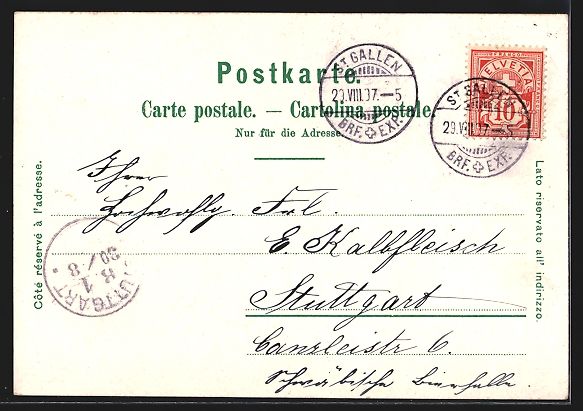 Postkarte.
Carte postale. — Cartolina postale.
Nur für die Adresse.
ST. GALLEN
29.VIII.97.—5
BRF. EXP.
HELVETIA
10
ST. GALLEN
29.VIII.97.—5
BRF. EXP.
Côté réservé à l'adresse.
Lato riservato all' indirizzo.
Ihrer
Hochwohlg. Frl.
E. Kalbfleisch
Stuttgart
Canzleistr 6.
Schwäbische Bierhalle.
STUTTGART
1
30/8